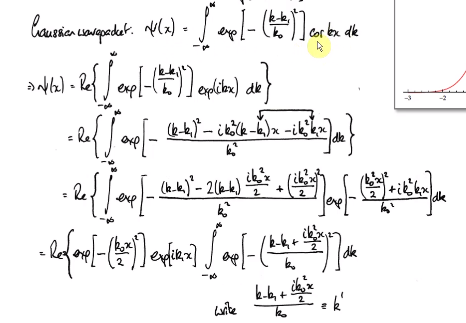 Gaussian wavepacket. ψ(x) = ∫_{-∞}^{∞} exp[-((k-k₁)/k₀)²] cos kx dk
⇒ ψ(x) = Re{∫_{-∞}^{∞} exp[-((k-k₁)/k₀)²] exp(ikx) dk}
= Re{∫_{-∞}^{∞} exp[-((k-k₁)² - ik₀²(k-k₁)x - ik₀²k₁x)/k₀²] dk}
= Re{∫_{-∞}^{∞} exp[-((k-k₁)² - 2(k-k₁) ik₀²x/2 + (ik₀²x/2)²)/k₀²] exp[-((k₀²x/2)² + ik₀²k₁x)/k₀²] dk
= Re{exp[-(k₀x/2)²] exp[ik₁x] ∫_{-∞}^{∞} exp[-((k-k₁ + ik₀²x/2)/k₀)²] dk
write (k-k₁ + ik₀²x/2)/k₀ ≡ k'
-3 -2